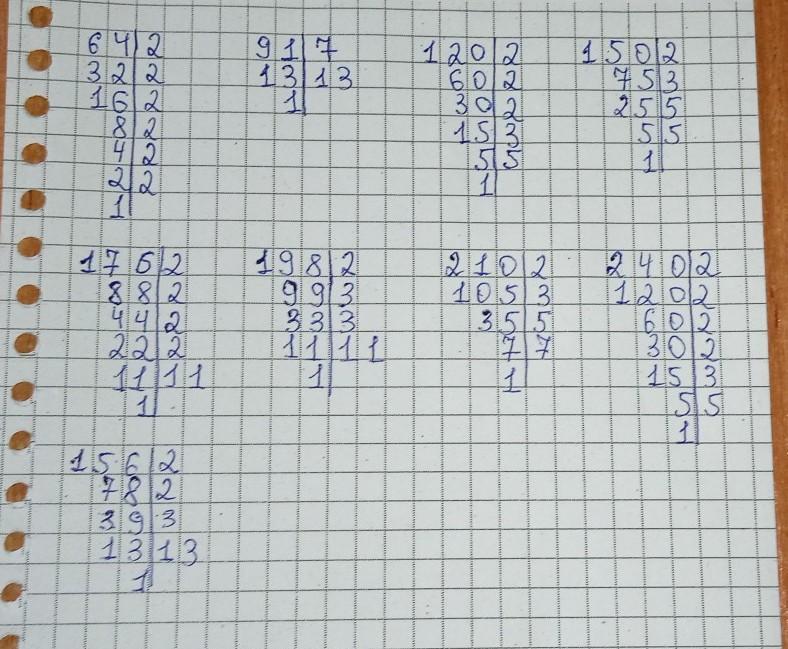 64|2 91|7 120|2 150|2
32|2 13|13 60|2 75|3
16|2 1| 30|2 25|5
8|2 15|3 5|5
4|2 5|5 1|
2|2 1|
1|
176|2 198|2 210|2 240|2
88|2 99|3 105|3 120|2
44|2 33|3 35|5 60|2
22|2 11|11 7|7 30|2
11|11 1| 1| 15|3
1| 5|5
1|
156|2
78|2
39|3
13|13
1|